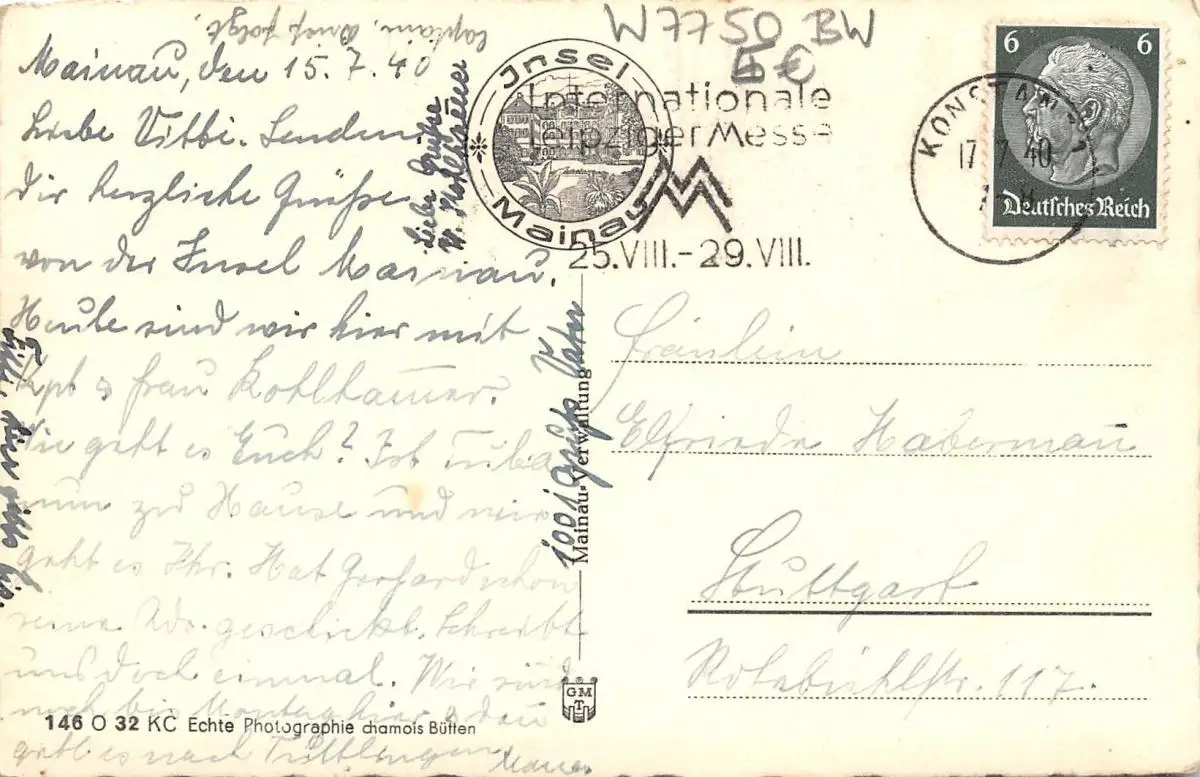 W 7750 BW
5 €
Mainau, den 15.7.40
Liebe Senden
dir herzliche Grüsse
von der Insel Mainau.
Heute sind wir hier mit
Kpt & Frau Kohlhamer.
Wie geht es Euch? Ist
nun zu Hause und wie
geht es Ihr. Hat Gerhard schon
seine Adr. geschickt. Schreibt
uns doch einmal. Wir sind
noch bis Montag hier & dan
geht es nach Tuttlingen
Liebe Grüsse
1001 Gruss
Insel
Mainau
Internationale
Leipziger Messe
25.VIII.-29.VIII.
KONSTANZ
17.7.40
6 6
Deutsches Reich
Fräulein
Elfriede Haberman
Stuttgart
Rotebühlstr. 117.
Mainau-Verwaltung
GM
T
146 O 32 KC Echte Photographie chamois Bütten